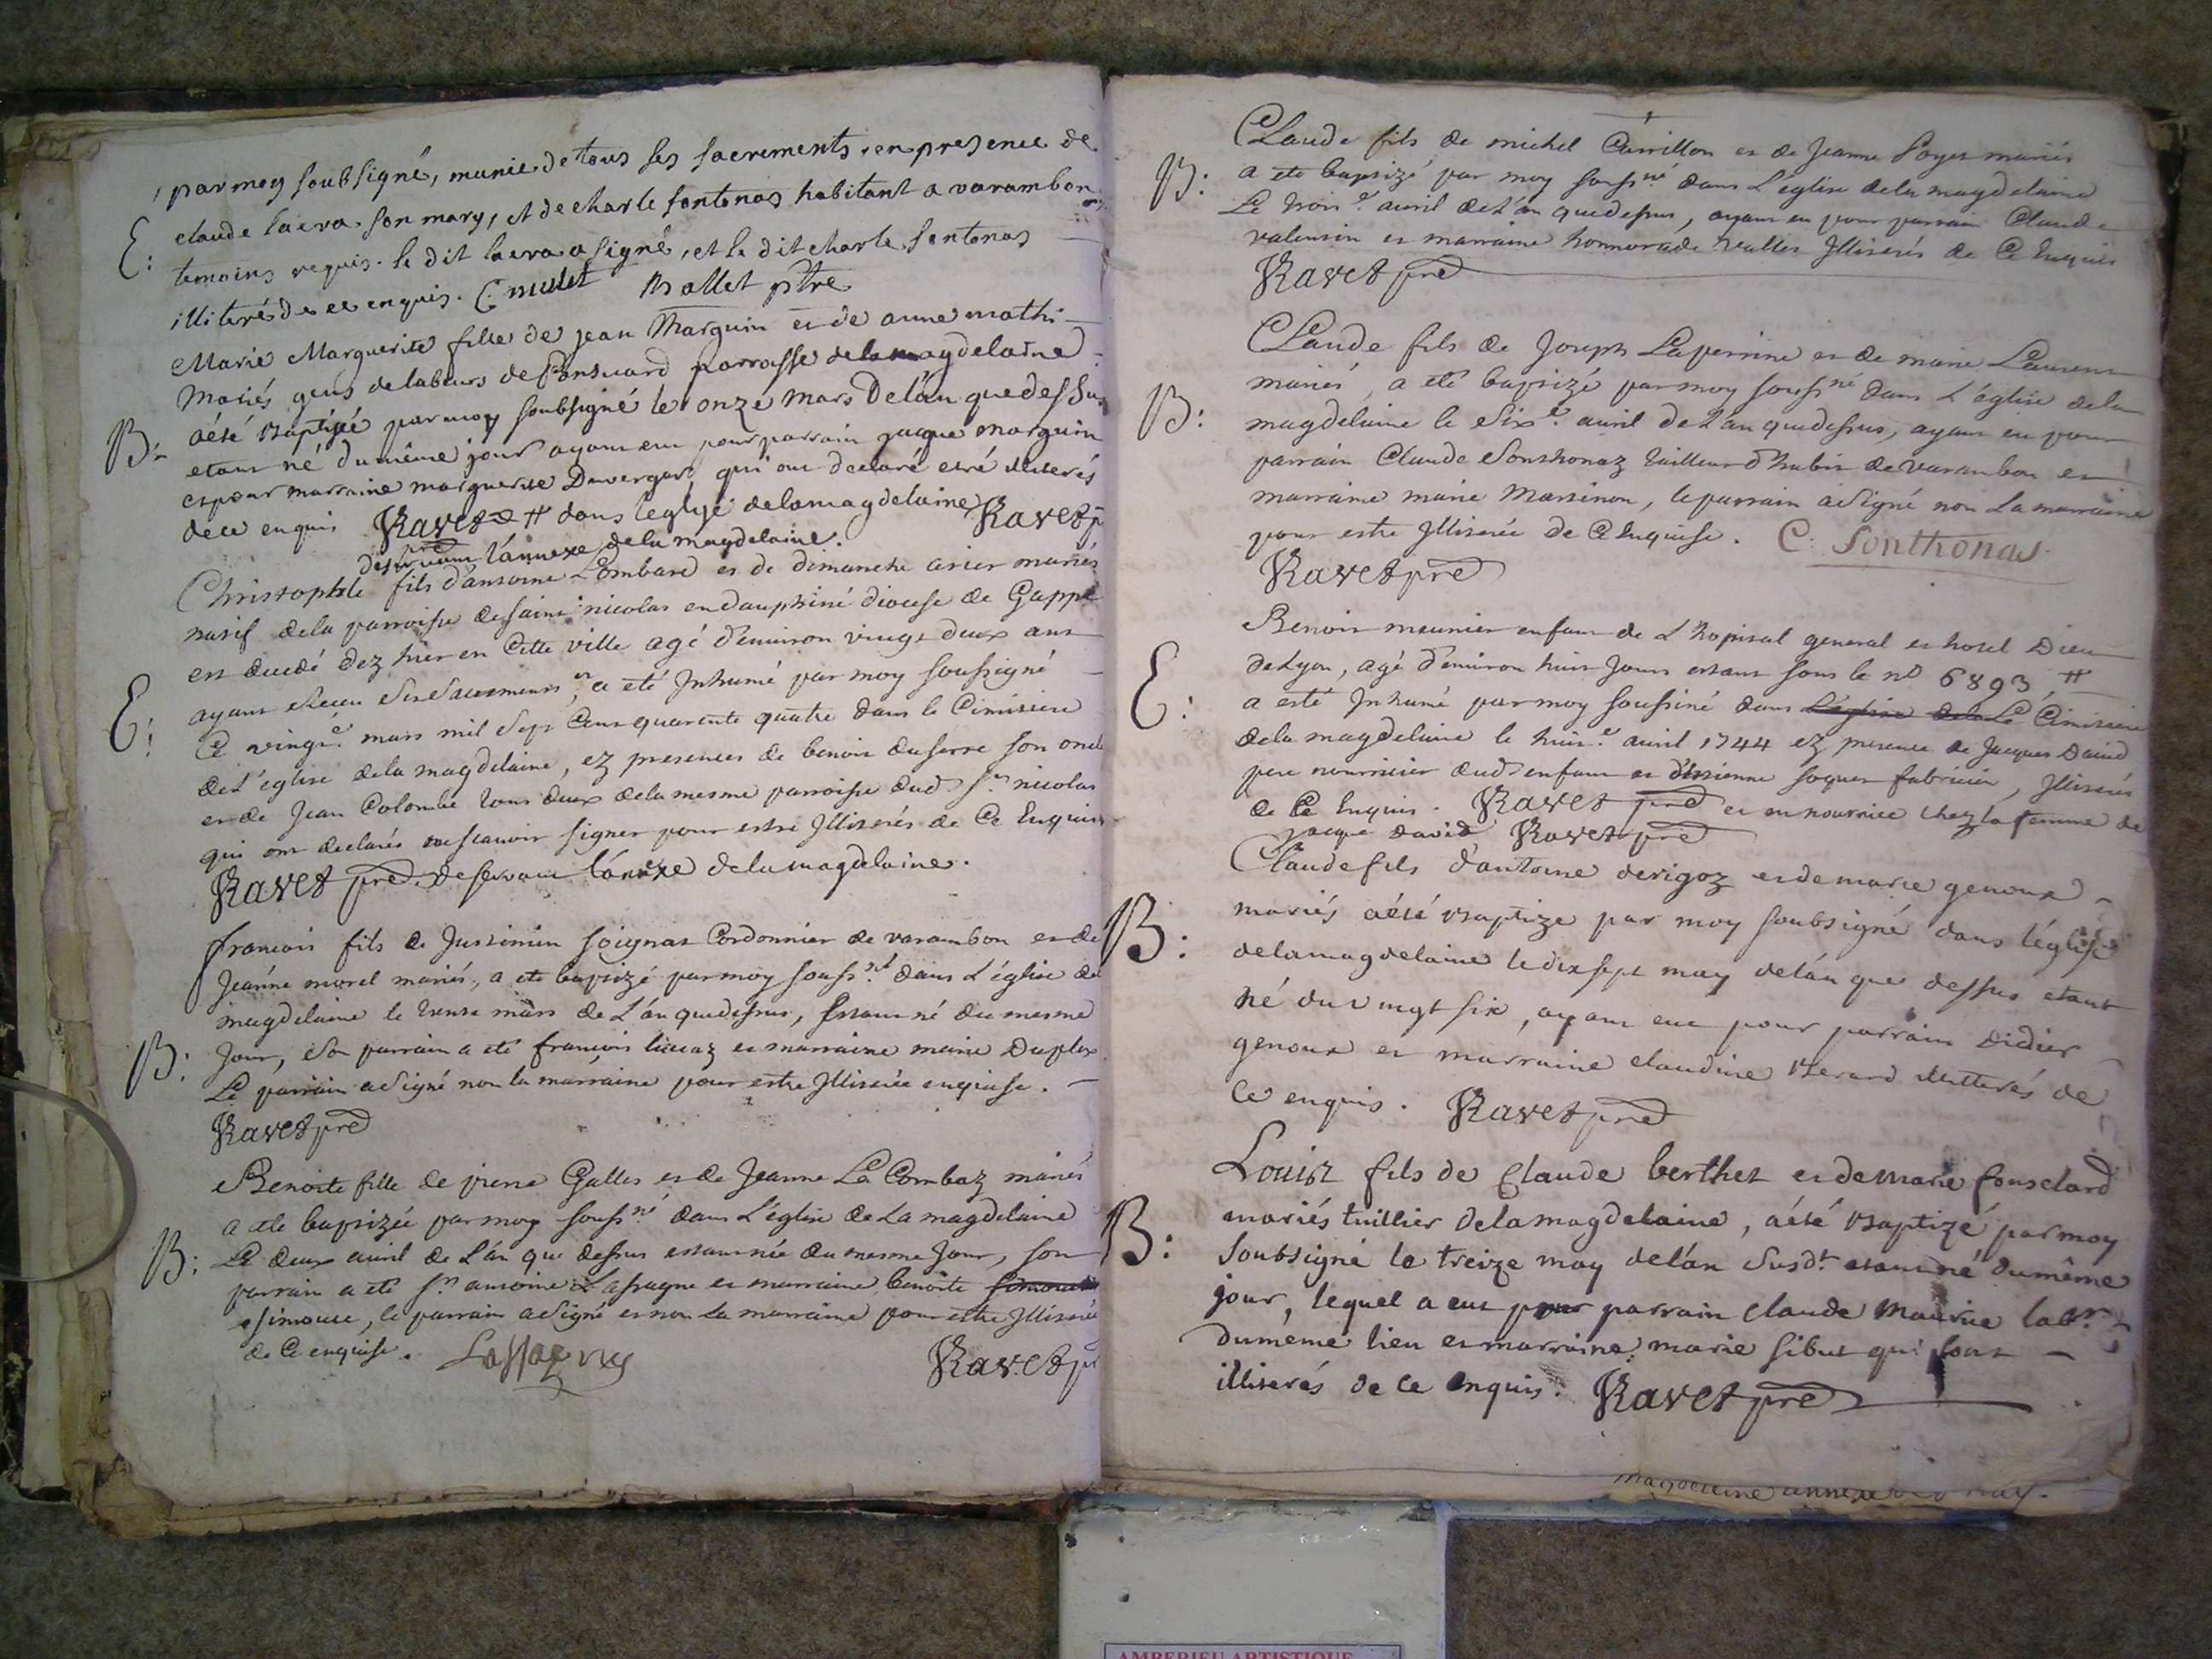 par moy soubsigné, munie de tous ses sacrements, en presence de
claude lacra son mary, et de charle fontenas habitant a varambon
E: temoins requis. le dit lacra a signé, et le dit charle fontenas
illiteré de ce enquis. C. mulet Ballet ptre
Marie Marguerite fille de jean Marguin et de anne mathi
Mariés gens de labeurs de parroisse de la magdelaine
B: aété Baptisée par moy soubsigné le onze mars De lán que dessus
etant né du même jour ayant eu pour parrain jacque marguin
et pour marraine marguerite Duvergert qui ont declaré estré illiterés
de ce enquis Ravet # dans leglise de la magdelaine Ravet p
desservant l'annexe de la magdelaine.
Christophle fils d'antoine Lombard et de dimanche arier mariés
natif de la parroisse de saint nicolas en dauphiné diocese de Gappe
est decedé dez hier en Cette ville agé d'environ vingt deux ans
E: ayant Receu Ses Sacrements, et a eté Inhumé par moy soussigné
Ce vingt.e mars mil Sept Cent quarente quatre dans le Cimitiere
de L'eglise de la magdelaine, ez presences de benoit duserre son oncle
et de Jean Colombe tous deux de la mesme parroisse dud St nicolas
qui ont declarés ne scavoir signer pour estre Illiterés de Ce Enquis
Ravet pre desservant l'anexe de la magdelaine.
francois fils de Justinien soignat Cordonnier de varambon et de
Jeánne morel mariés, a ete baptizé par moy souss.né dans L'église de
magdelaine le trente mars de L'án que dessus, Estant né du mesme
B: Jour, Son parrain a eté francois et marraine marie Duplex
Le parrain a Signé non la marraine pour estre Illiterée enquise.
Ravet pre
Benoite fille de pierre Gallet et de Jeanne La Combaz mariés
a ete baptizée par moy souss.né dans L'église de La magdelaine
B: Le deux avril de L'án que dessus estant née du mesme Jour, son
parrain a eté Sr antoine Lassagne et marraine benoite
simonet, le parrain a Signé et non La marraine pour estre Illiterée
de Ce enquise. Lassagne Ravet p
Claude fils de michel Carrillon et de Jeanne Soyet mariés
B: a ete baptizé par moy souss.né dans L'eglise de la magdelaine
Le trois.e avril de L'án que dessus, ayant eu pour parrain Claude
valentin et marraine honnorade vallet Illiterés de Ce Enquis
Ravet pre
Claude fils de Joseph Laperrine et de marie Laurent
mariés, a eté baptizé par moy souss.né dans L'église de la
B: magdelaine le Six.e avril de L'an que dessus, ayant eu pour
parrain Claude Sonthonaz tailleur d'habit de varambon et
marraine marie Martinon, le parrain a Signé non La marraine
pour estre Illiterée de Ce Enquise. C. Sonthonas
Ravet pre
Benoit meunier enfant de L'hopital general et hotel Dieu
de Lyon, agé d'environ huit Jours estant sous le no 6893 #
E: a esté Inhumé par moy soussiné dans L'église dela Le Cimitiere
de la magdelaine le huit.e avril 1744 ez presence de Jacques David
pere nourricier dud enfant et d'etienne soquet fabricien, Illiterés
de Ce Enquis. Ravet pre et en nourrice chez la femme de
jacque David Ravet pre
Claude fils d'antoine derigoz et de marie genoux
mariés aété Baptize par moy soubsigné dans l'église
B: de la magdelaine le dix sept may de lán que dessus etant
né du vingt six, ayant eue pour parrain Didier
genoux et marraine claudine Berard illitterés de
Ce enquis. Ravet pre
Louis fils de Claude berthet et de marie fonselard
mariés tuillier de la magdelaine, aété Baptizé par moy
B: Soubsigné le treize may de lán Susdt etant né du même
jour, lequel a eut pour parrain claude maurice labr.
du même lieu et marraine marie sibut qui sont
illiterés de ce enquis. Ravet pre
magdelaine annexe
AMBERIEU ARTISTIQUE